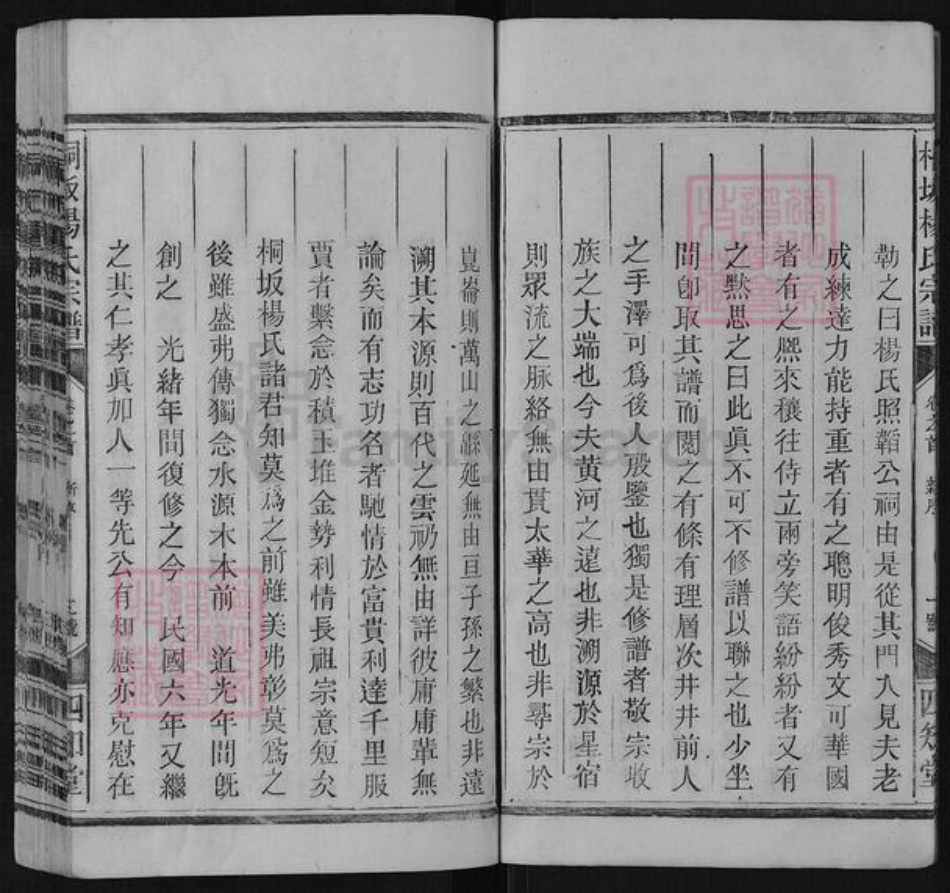 桐坂楊氏宗譜
卷之首
一號
四知堂
勒之曰楊氏照韜公祠由是從其門入見夫老
成練達力能持重者有之聰明俊秀文可華國
者有之熈來穰往侍立兩旁笑語紛紛者又有
之默思之曰此眞不可不修譜以聯之也少坐
間卽取其譜而閱之有條有理層次井井前人
之手澤可爲後人殷鑒也獨是修譜者敬宗收
族之大端也今夫黃河之遠也非溯源於星宿
則眾流之脉絡無由貫太華之高也非尋宗於
崑崙則萬山之緜延無由亘子孫之繁也非遠
溯其本源則百代之雲礽無由詳彼庸庸輩無
論矣而有志功名者馳情於富貴利達千里服
賈者繫念於積玉堆金勢利情長祖宗意短矣
桐坂楊氏諸君知莫爲之前雖美弗彰莫爲之
後雖盛弗傳獨念水源木本前 道光年間旣
創之 光緒年間復修之今 民國六年又繼
之其仁孝眞加人一等先公有知應亦克慰在
桐坂楊氏宗譜
卷之首
四知堂
FamilySearch